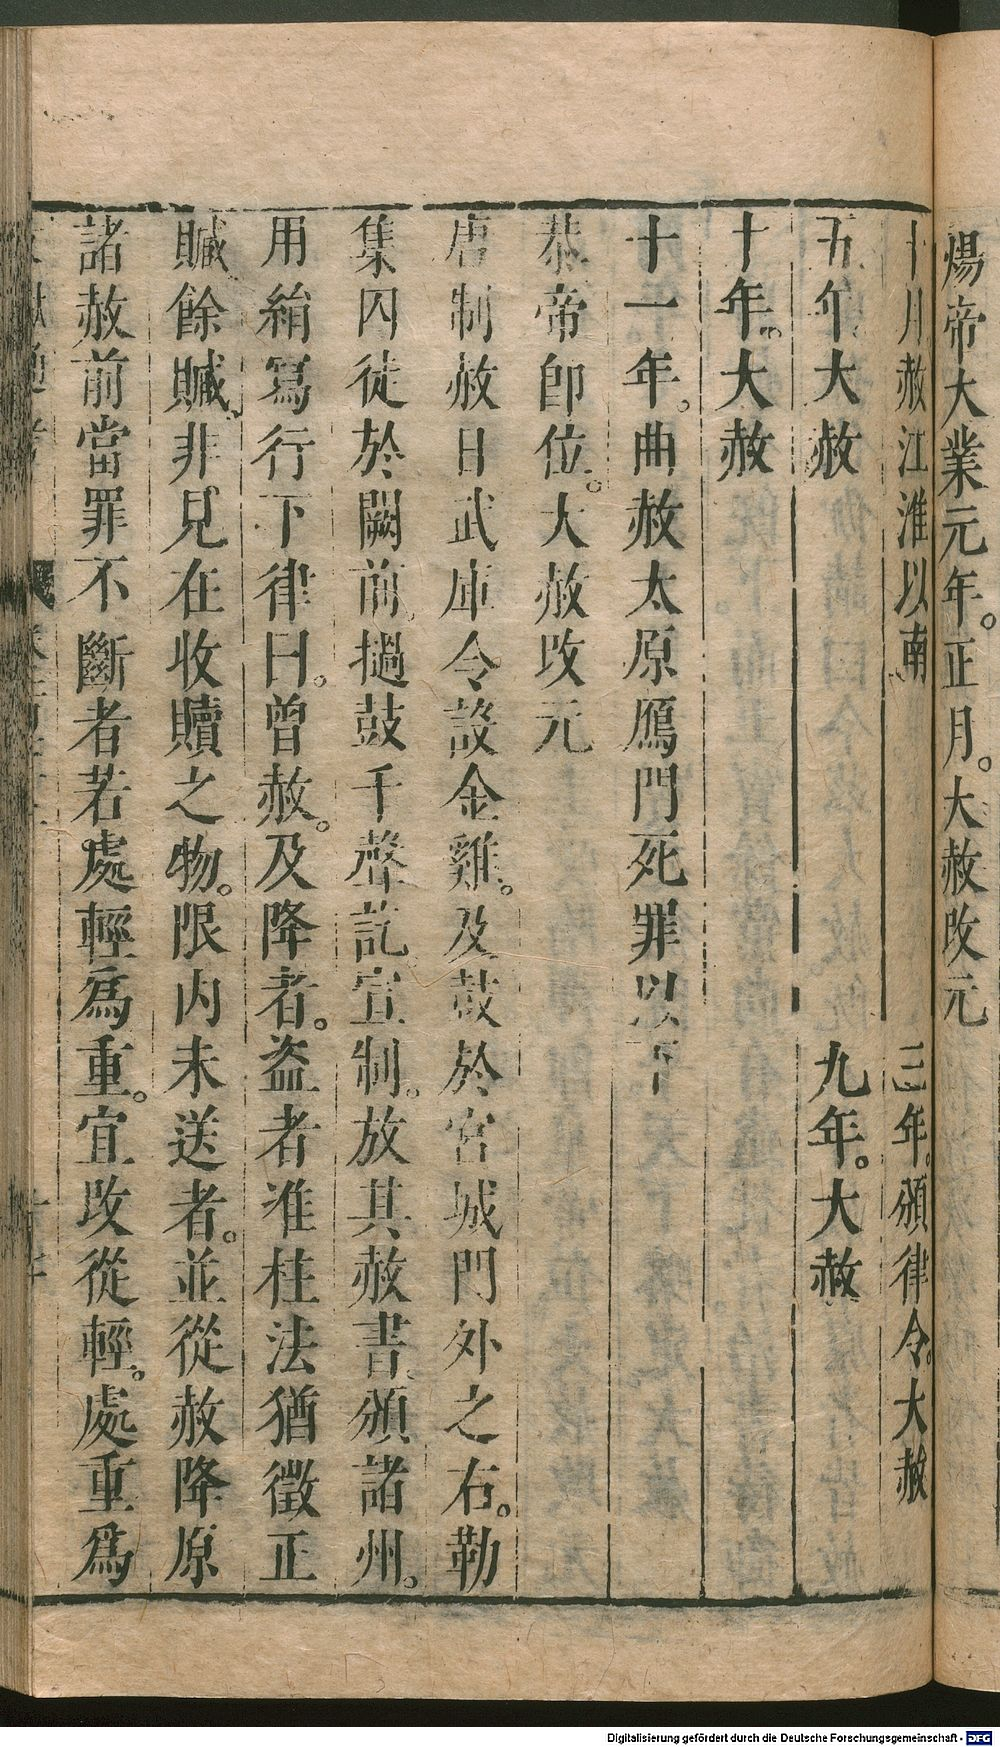 煬帝大業元年。正月。大赦改元
十月赦江淮以南、 三年。頒律令。大赦
五年大赦 九年。大赦
十年。大赦
十一年。曲赦太原鴈門死罪以下
恭帝即位。大赦改元
唐制赦日武庫令設金雞。及鼓於宮城門外之右。勒
集囚徒於闕前、撾鼓千聲訖宣制。放其赦書、頒諸州。
用絹寫行下律曰。曾赦。及降者。盗者准枉法猶徵正
贓、餘贓、非見在收贖之物。限内未送者。並從赦降原
諸赦前當罪不斷者若處輕爲重。宜改從輕。處重爲
Digitalisierung gefördert durch die Deutsche Forschungsgemeinschaft - DFG